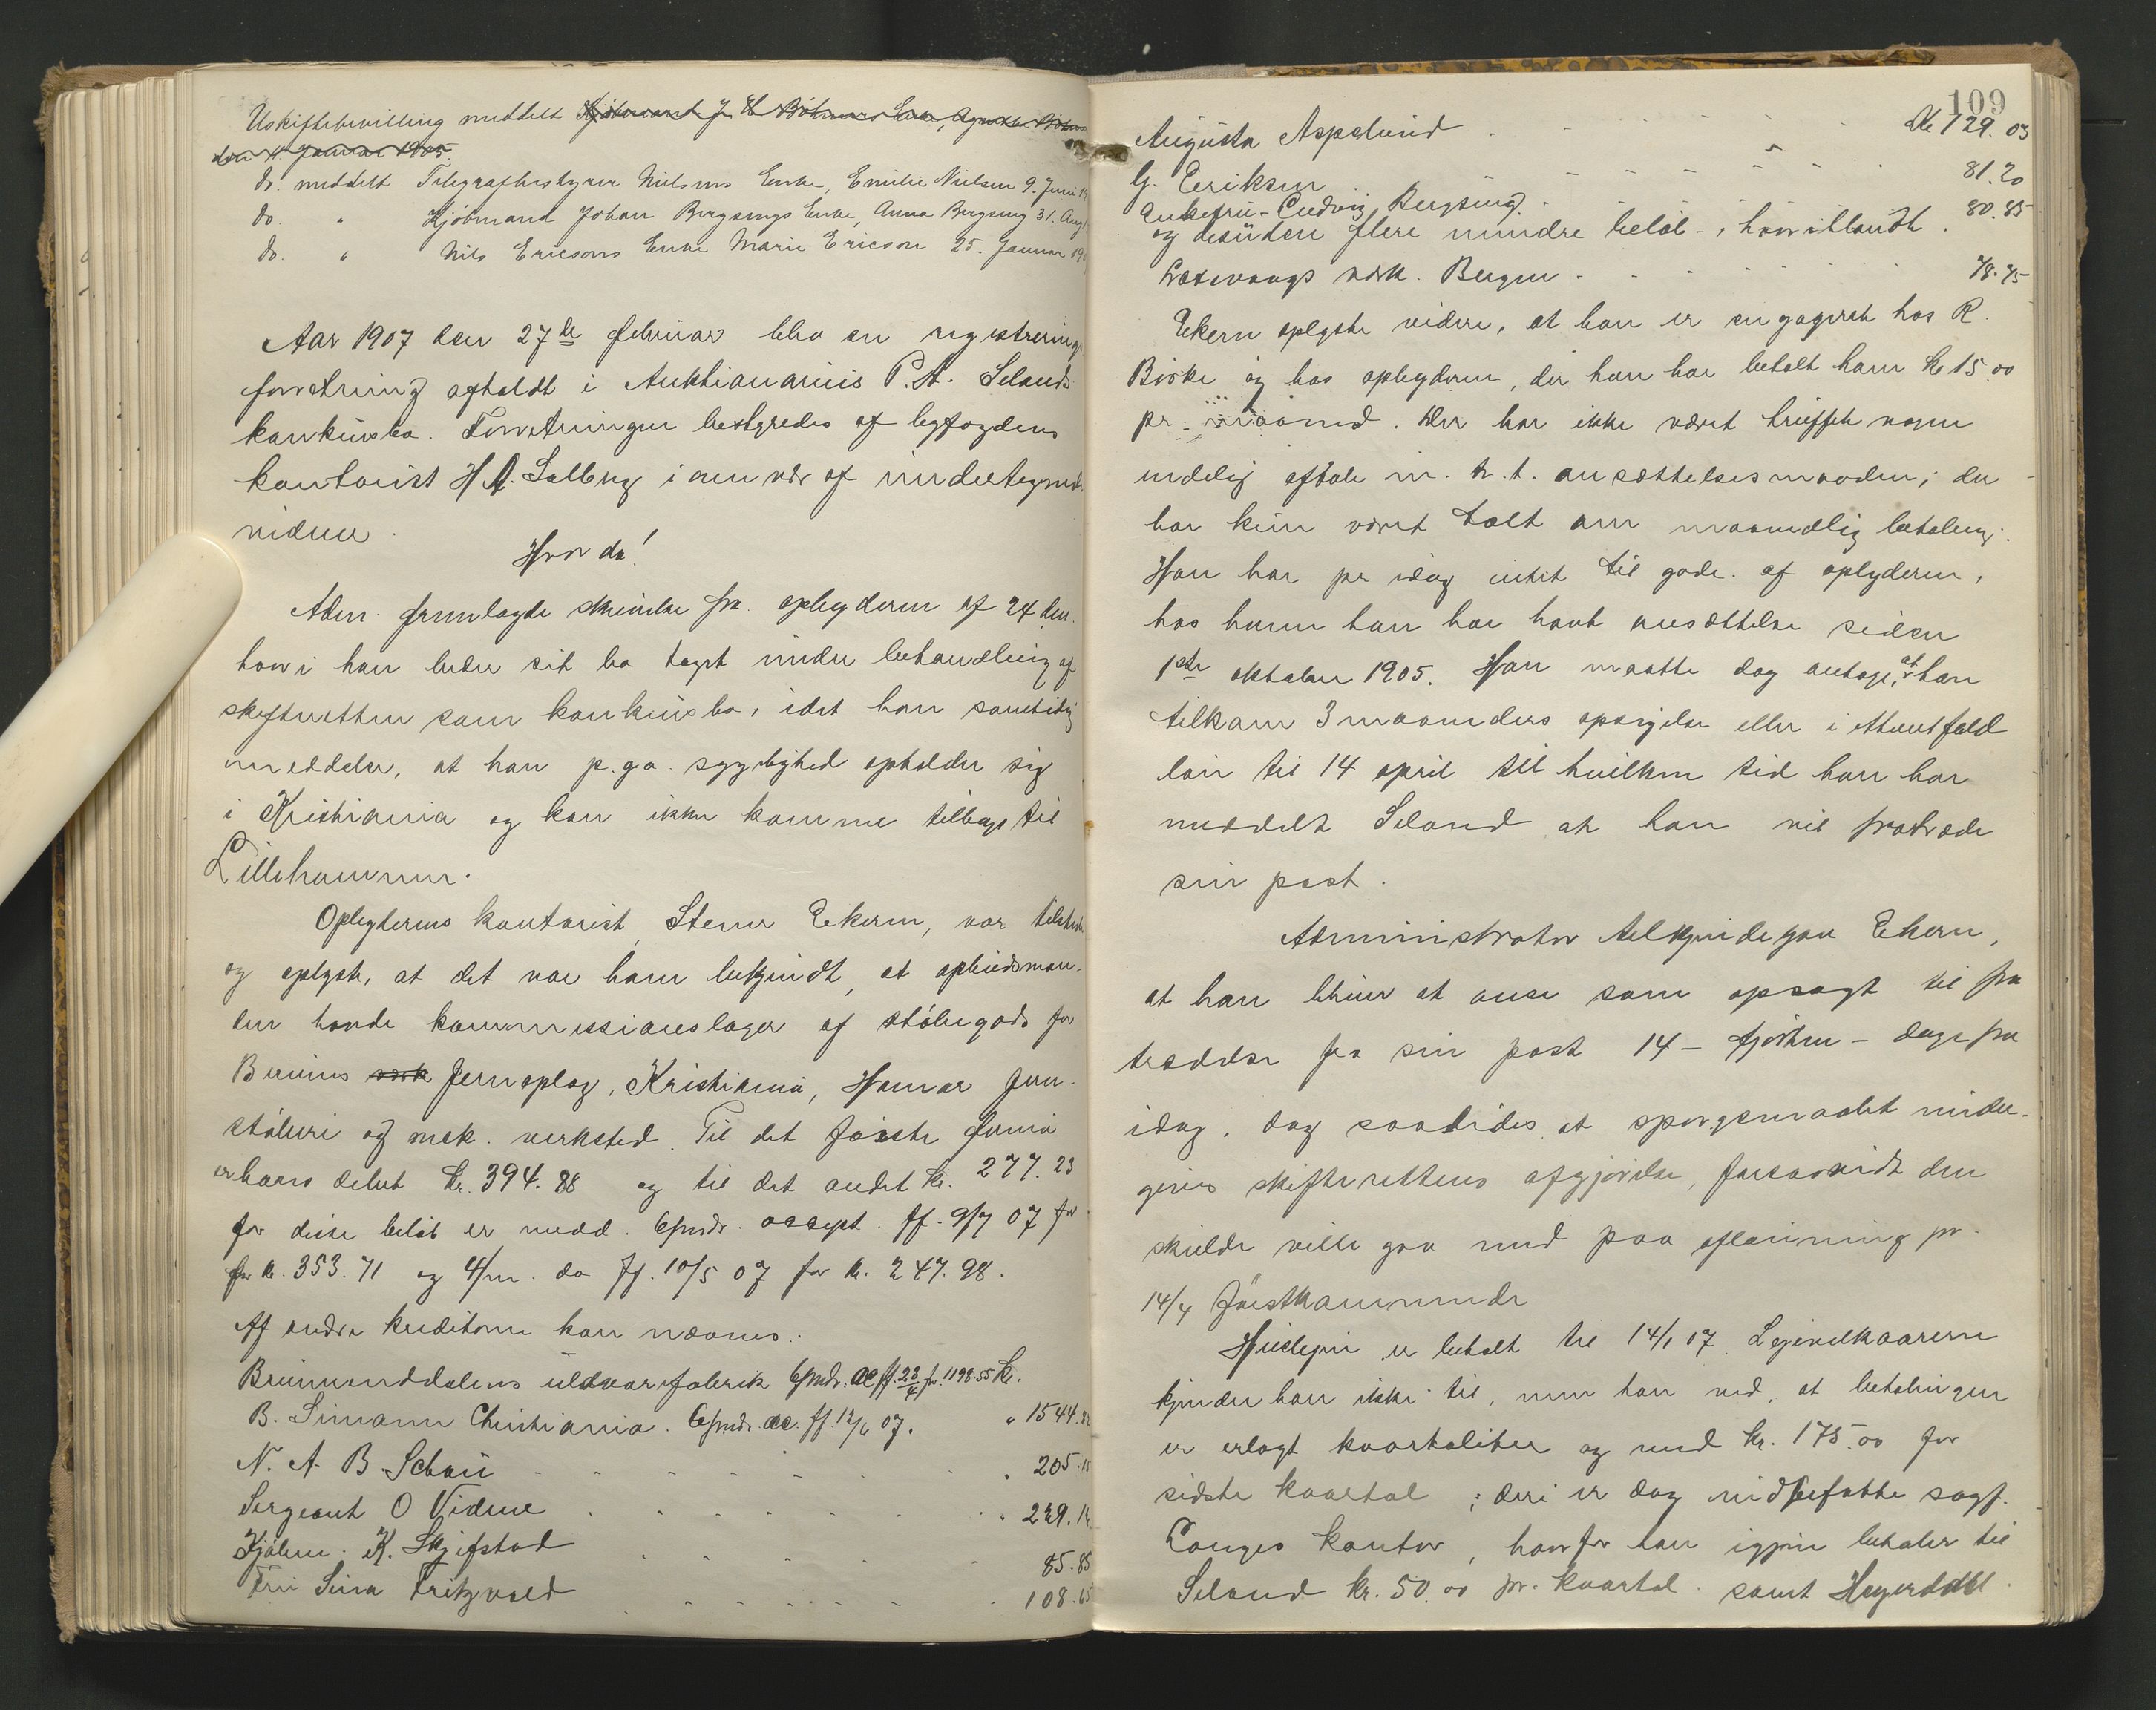 Uskiftebevilling meddelt Kjöbmand J H Böhmers Enke, Agnethe Böhm
den 11 Januar 1905.
do. meddelt Telegrafbestyrer Nielsens Enke, Emilie Nielsen 9. Juni 19
do. " Kjöbmand Johan Bergsengs Enke, Anna Bergseng 31. Aug
do. " Nils Ericsons Enke Marie Ericson 25. Januar 19
Aar 1907 den 27de februar blev en registrerings
forretning afholdt i Auktionarius P. A. Selands
konkursbo. Forretningen bestyredes af byfogdens
kontorist H A. Salberg i overvær af undertegnede
vidner.
Hvor da!
Adm. fremlagde skrivelse fra opbyderen af 24 ds.
hvori han beder sit bo taget under behandling af
skifteretten som konkursbo, idet han samtidig
meddeler, at han p.g.a. sygelighed opholder sig
i Kristiania og kan ikke komme tilbage til
Lillehammer.
Opbyderens kontorist, Stener Ekern, var tilstede
og oplyste, at det var ham bekjendt, at opbudsman-
den havde kommissionslager af stöbegods for
Brunns værk Jernoplag, Kristiania, Hamar Jern-
stöberi og mek. verksted. Til det förste firma
er hans debet kr. 394.88 og til det andet kr. 277.23
for disse beløb er medd. 6 mdr. accept. ff. 9/7 07 for
for kr. 353.71 og 4/m. do ff. 10/5 07 for kr. 247.98.
Af andre kreditorer kan nævnes:
Brumunddalens uldvarefabrik 6 mdr. ac ff. 23/4 fr. 1198.55 kr.
B. Simann Christiania. 6 mdr. ac. ff. 12/6 07. " 1544.82
N. A. B. Schou " 205.15
Sergeant O Vidme " 229.14
Kjöbm. K. Skjefstad 85.85
Fru Sina Fritzvold 108.65
109
Augusta Aspelund Kr 129.03
G. Eriksen " 81.20
Enkefru Ludvig Bergseng 80.85
og desuden flere mindre beløb, hvoriblandt.
Gresvaags verk. Bergen 78.75
Ekern oplyste videre, at han er engageret hos R.
Birke og hos opbyderen, der han har betalt ham kr 15.00
pr. maaned. Der har ikke været truffet nogen
endelig aftale m. h. t. ansættelsesmaaden; der
har kun været talt om maanedlig betaling.
Han har pr idag intet til gode af opbyderen,
hos hvem han har havt ansættelse siden
1ste oktober 1905. Han maatte dog antage, at han
tilkom 3 maaneders opsigelse eller i ethvert fald
løn til 14 april til hvilken tid han har
meddelt Seland at han vil fratræde
sin post.
Administrator tilkjendegav Ekern,
at han bliver at anse som opsagt til fra
trædelse fra sin post 14 - fjorten - dage fra
idag, dog saaledes at spørgsmaalet under-
gives skifterettens afgjørelse, forsaavidt den
skulde ville gaa med paa aflønning pr.
14/4 förstkommende
Husleien er betalt til 14/1 07. Leievilkaarene
kjender han ikke til, men han ved, at betalingen
er erlagt kvartaliter og med kr. 175.00 for
sidste kvartal; deri er dog indbefattet sagf.
Langes kontor, hvorfor han igjen betaler til
Seland kr. 50.00 pr. kvartal. samt Hagerdahl